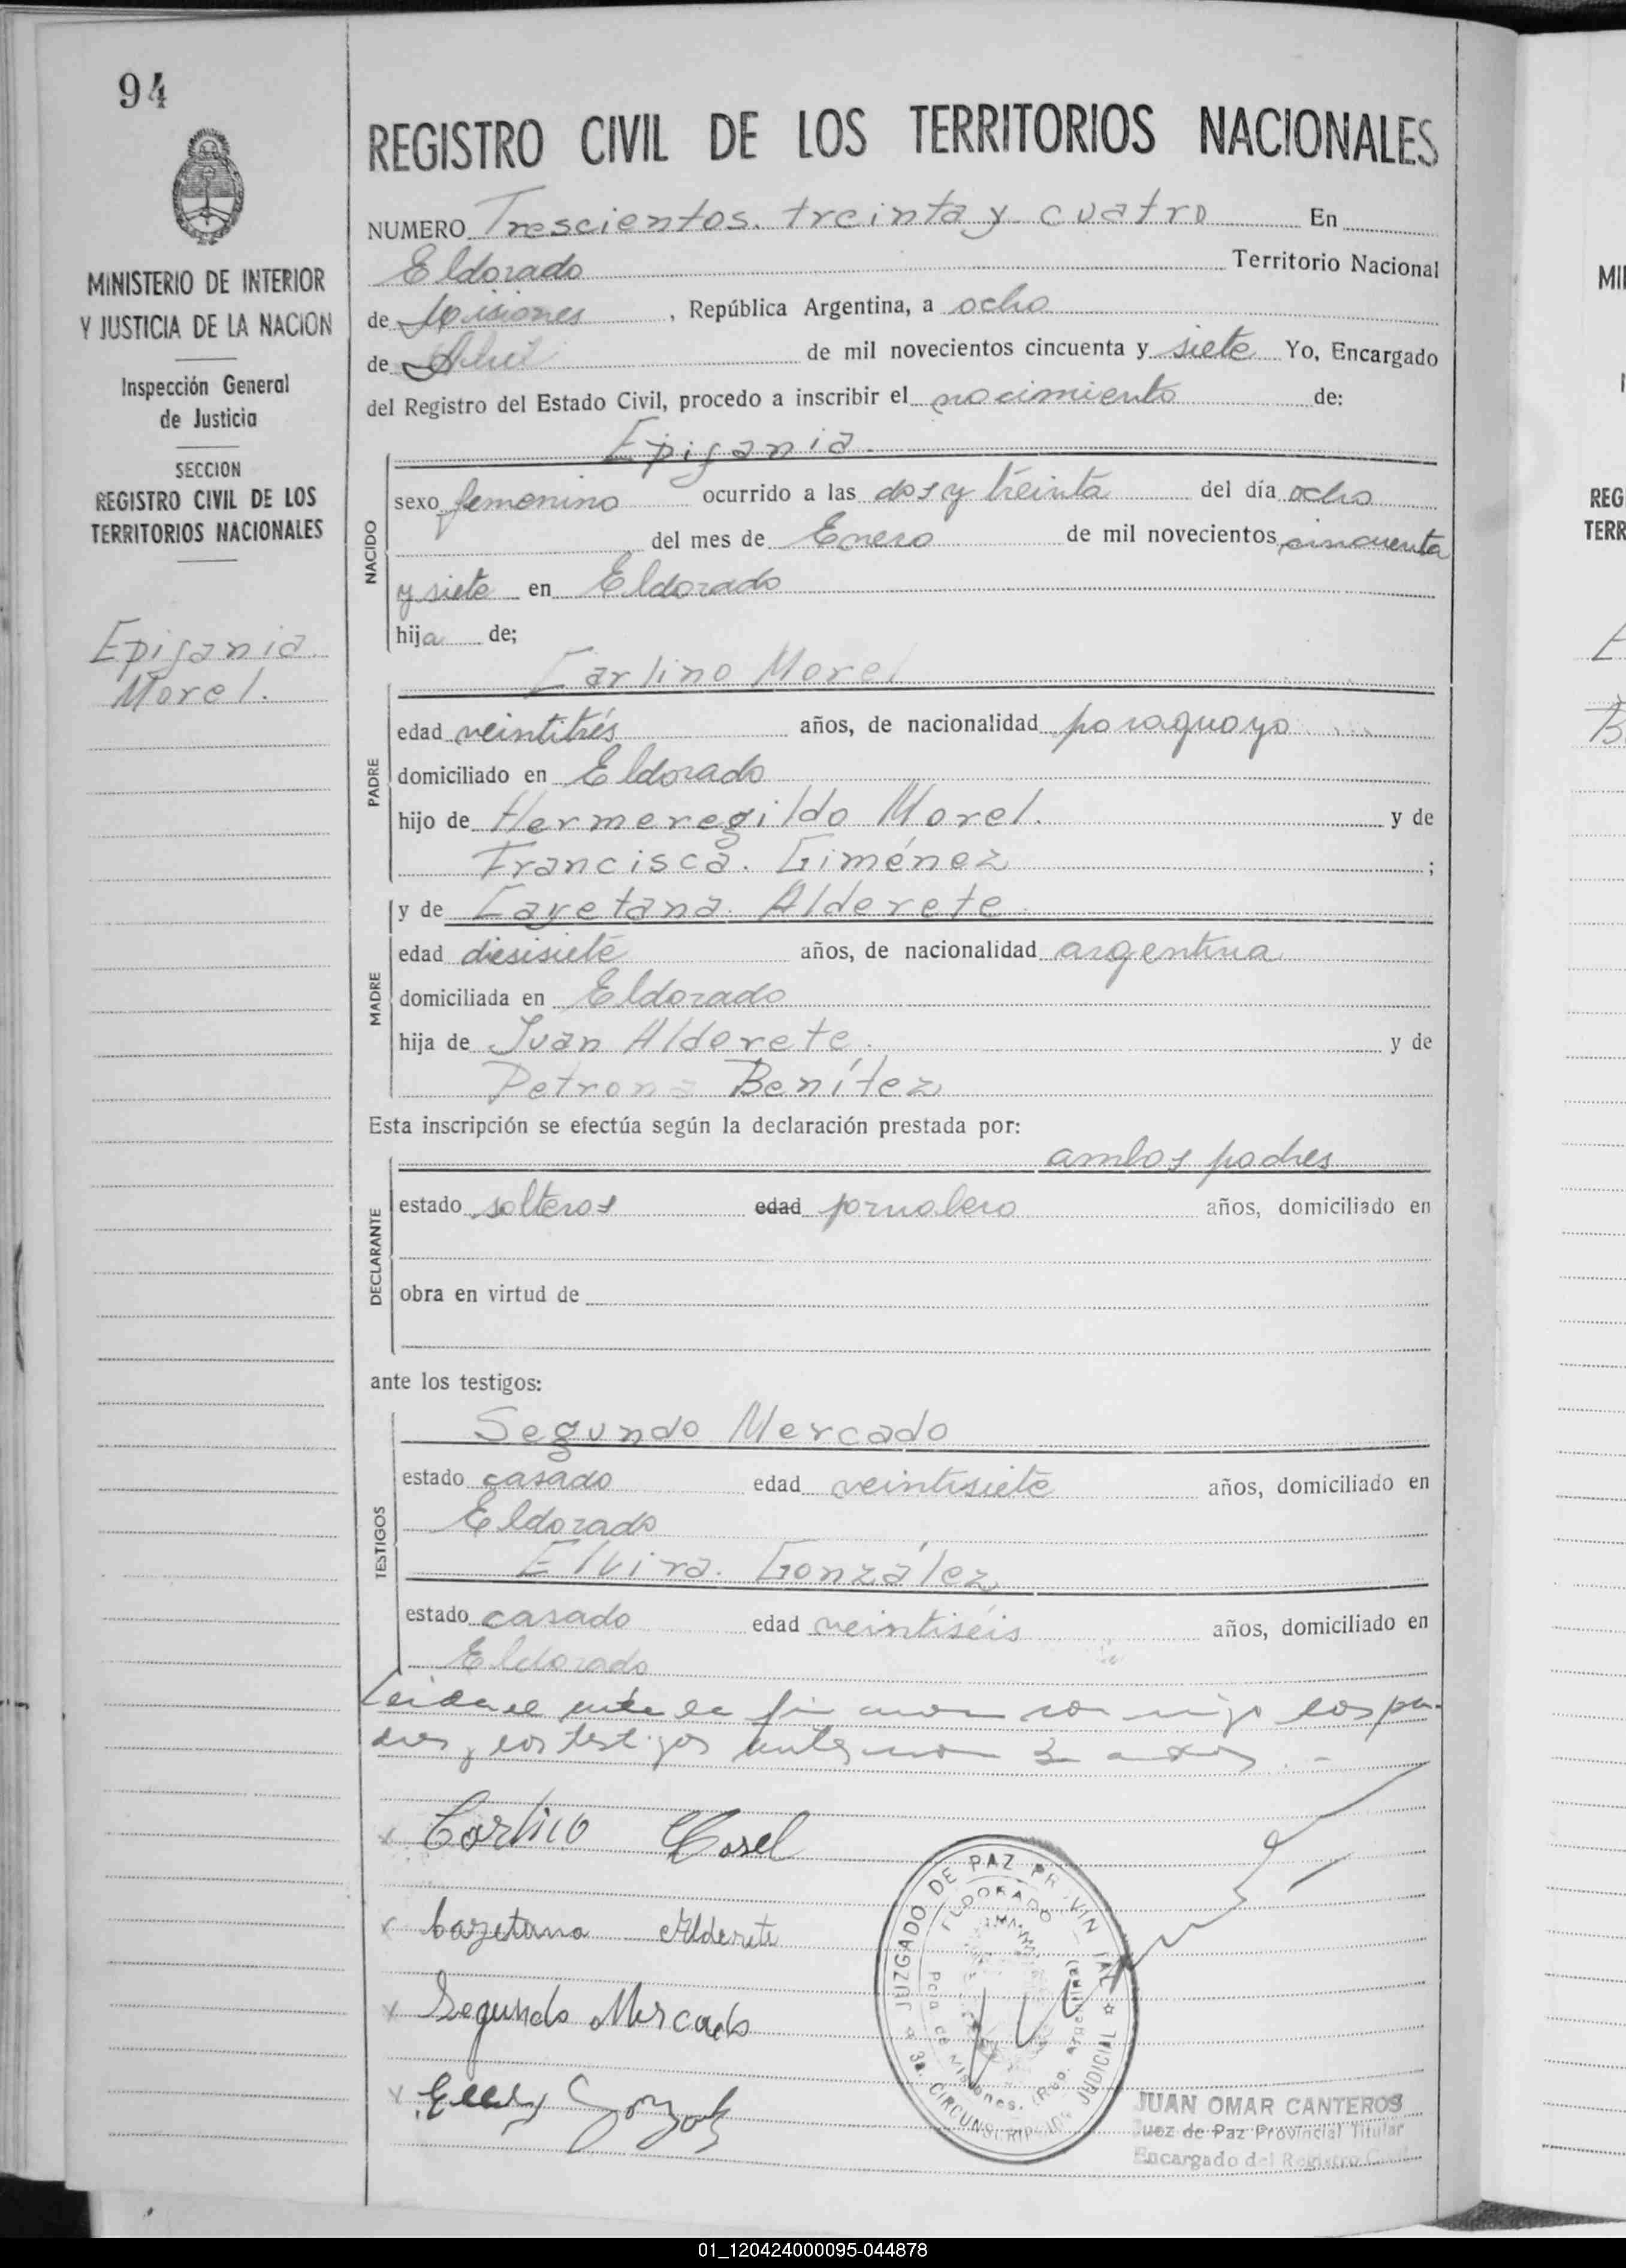 94
MINISTERIO DE INTERIOR
Y JUSTICIA DE LA NACION
Inspección General
de Justicia
SECCION
REGISTRO CIVIL DE LOS
TERRITORIOS NACIONALES
Epifania
Morel.
REGISTRO CIVIL DE LOS TERRITORIOS NACIONALES
NUMERO Trescientos. treinta y cuatro En
Eldorado Territorio Nacional
de Misiones, República Argentina, a ocho
de Abril de mil novecientos cincuenta y siete Yo, Encargado
del Registro del Estado Civil, procedo a inscribir el nacimiento de:
Epifania.
NACIDO
sexo femenino ocurrido a las dos y treinta del día ocho
del mes de Enero de mil novecientos cincuenta
y siete en Eldorado
hija de;
Carlino Morel
PADRE
edad veintitrés años, de nacionalidad paraguayo
domiciliado en Eldorado
hijo de Hermeregildo Morel. y de
Francisca. Giménez ;
y de Cayetana. Alderete
MADRE
edad diesisiete años, de nacionalidad argentina
domiciliada en Eldorado
hija de Juan Alderete. y de
Petrona Benítez
Esta inscripción se efectúa según la declaración prestada por:
ambos padres
DECLARANTE
estado solteros edad jornalero años, domiciliado en
obra en virtud de
ante los testigos:
TESTIGOS
Segundo Mercado
estado casado edad veintisiete años, domiciliado en
Eldorado
Elvira. González
estado casado edad veintiséis años, domiciliado en
Eldorado
Leida el acta la los pa-
dres y los testigos
x Carlino Morel
x Cayetana Alderete
x Segundo Mercado
x González
JUZGADO DE PAZ PROVINCIAL
3a. CIRCUNSCRIPCION JUDICIAL
ELDORADO
Pcia de Misiones. (Rep. Argentina)
JUAN OMAR CANTEROS
Juez de Paz Provincial Titular
Encargado del Registro Civil
MI
REG
TERR
01_120424000095-044878